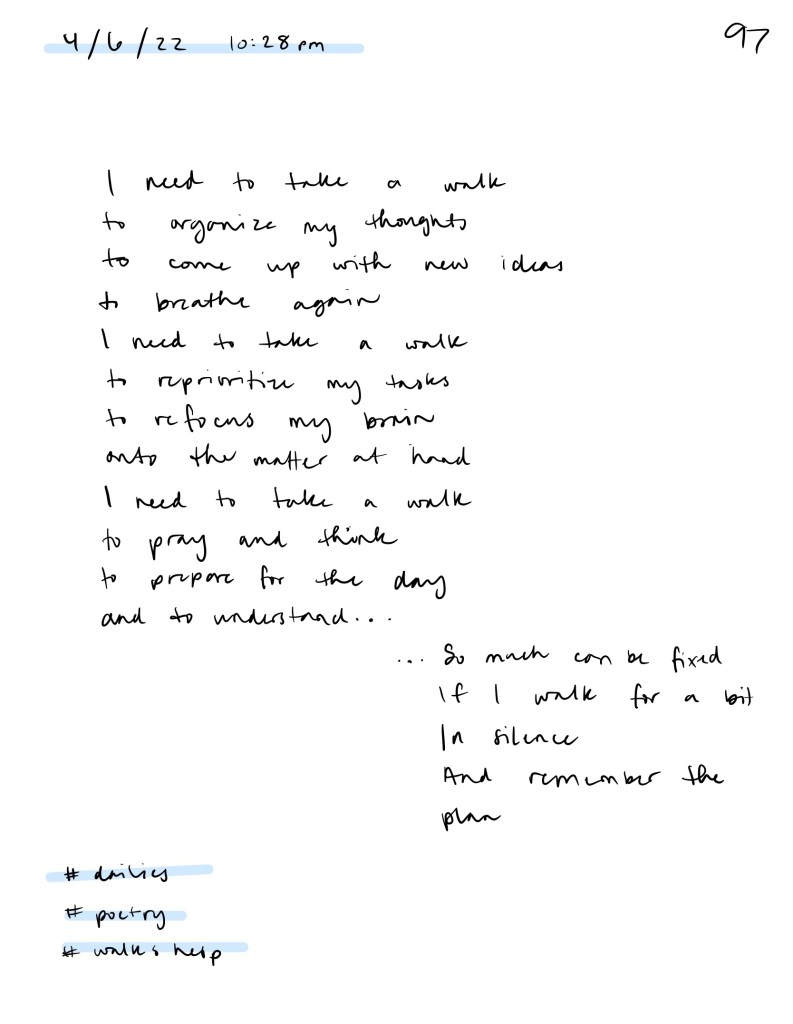 4/6/22 10:28 pm
97
I need to take a walk
to organize my thoughts
to come up with new ideas
to breathe again
I need to take a walk
to reprioritize my tasks
to refocus my brain
onto the matter at hand
I need to take a walk
to pray and think
to prepare for the day
and to understand...
... So much can be fixed
If I walk for a bit
In silence
And remember the
plan
# dailies
# poetry
# walks help